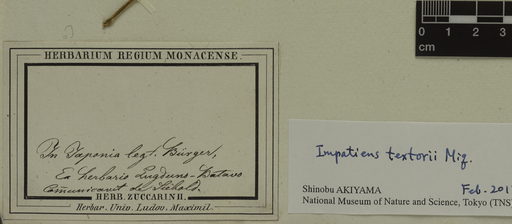 HERBARIUM REGIUM MONACENSE.
In Japonia legt. Bürger,
Ex herbario Lugduno-Batavo
communicavit de Siebold.
HERB. ZUCCARINII.
Herbar. Univ. Ludov. Maximil.
0 1 2 3
cm
Impatiens textorii Miq.
Shinobu AKIYAMA Feb. 201
National Museum of Nature and Science, Tokyo (TNS